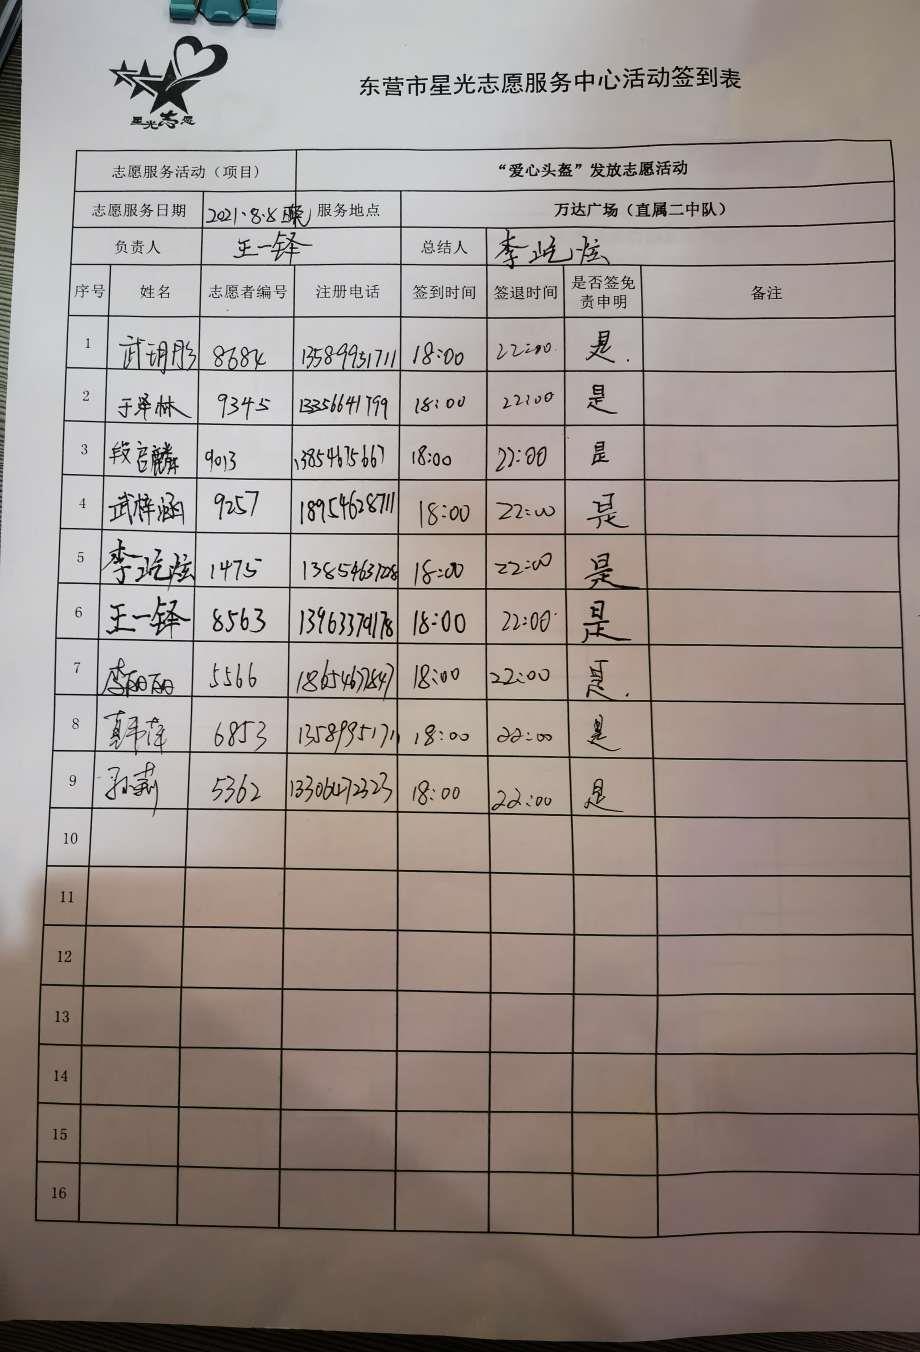 星光志愿
东营市星光志愿服务中心活动签到表
志愿服务活动（项目） “爱心头盔”发放志愿活动
志愿服务日期 2021.8.8 服务地点 万达广场（直属二中队）
负责人 王一铎 总结人 李屹炫
序号 姓名 志愿者编号 注册电话 签到时间 签退时间 是否签免责申明 备注
1 8684 13589951711 18:00 22:00 是.
2 于泽林 9345 13356641799 18:00 22:00 是
3 9013 13854675667 18:00 22:00 是
4 武梓涵 9257 18954628711 18:00 22:00 是
5 李屹炫 1475 18:00 22:00 是
6 王一铎 8563 18:00 22:00 是
7 李丽丽 5566 18654672847 18:00 22:00 是.
8 6853 13589951711 18:00 22:00 是
9 孙莉 5362 13306472323 18:00 22:00 是
10
11
12
13
14
15
16